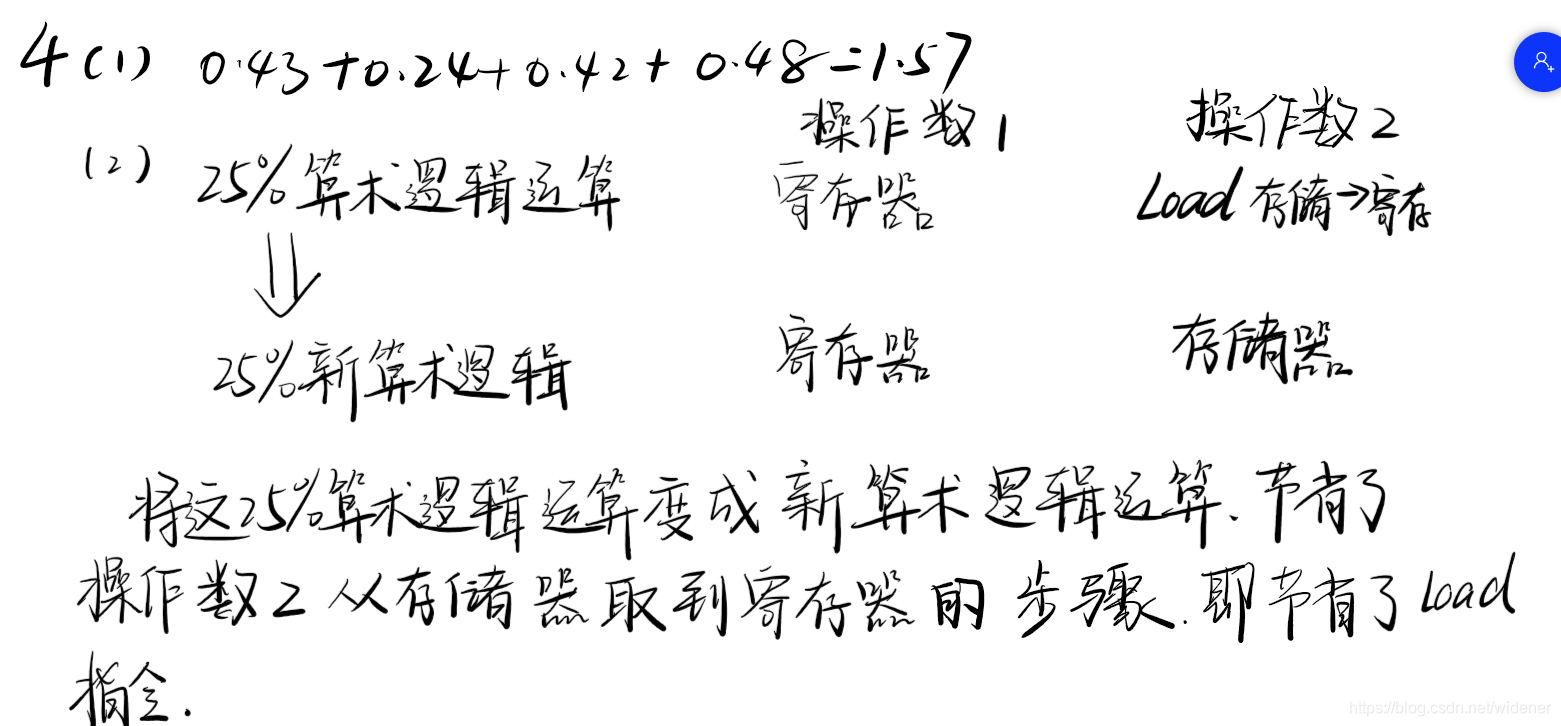 4(1) 0.43+0.24+0.42+0.48=1.57
操作数1 操作数2
(2) 25%算术逻辑运算 寄存器 Load 存储→寄存
⇓
25%新算术逻辑 寄存器 存储器
将这25%算术逻辑运算变成新算术逻辑运算.节省了
操作数2从存储器取到寄存器的步骤.即节省了Load
指令.
https://blog.csdn.net/widener